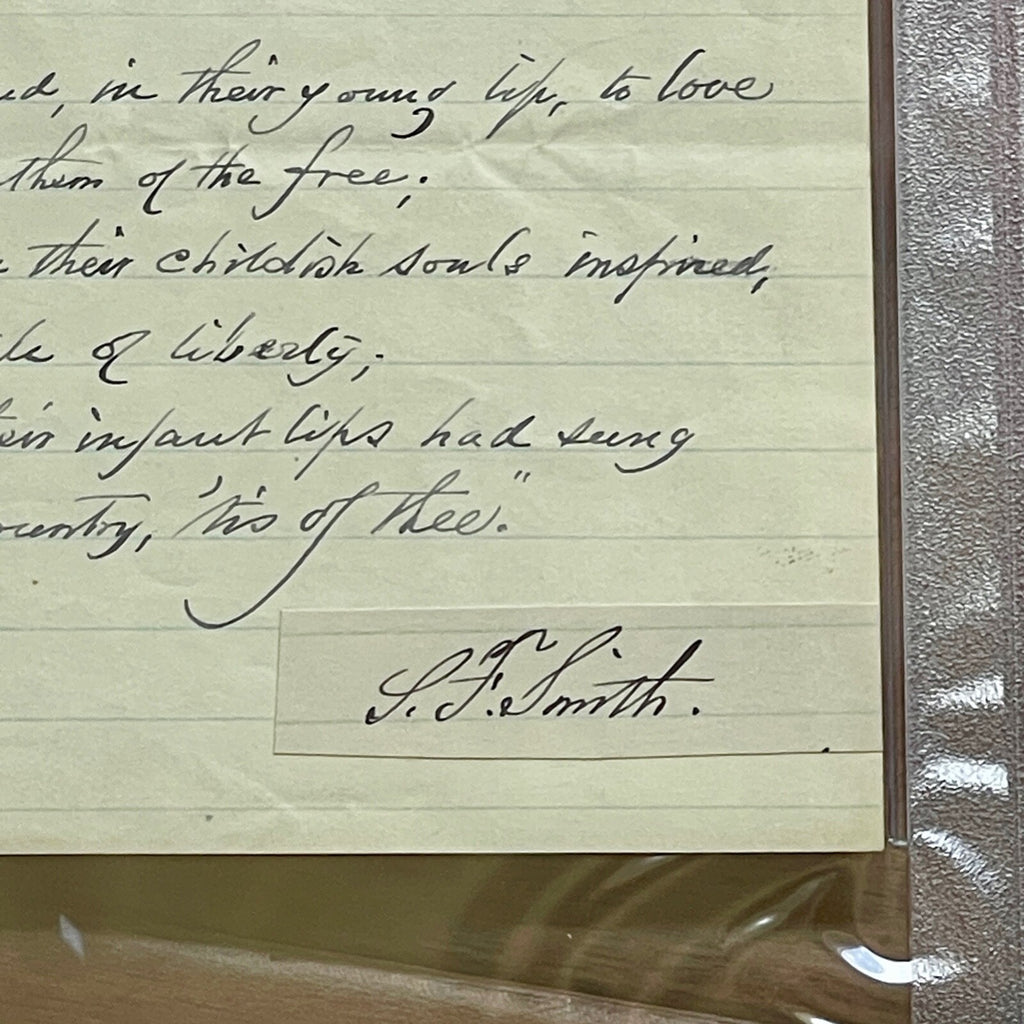 in their young lip, to love
of the free;
their childish souls inspired,
of liberty;
infant lips had sung
'tis of thee."
S. F. Smith.